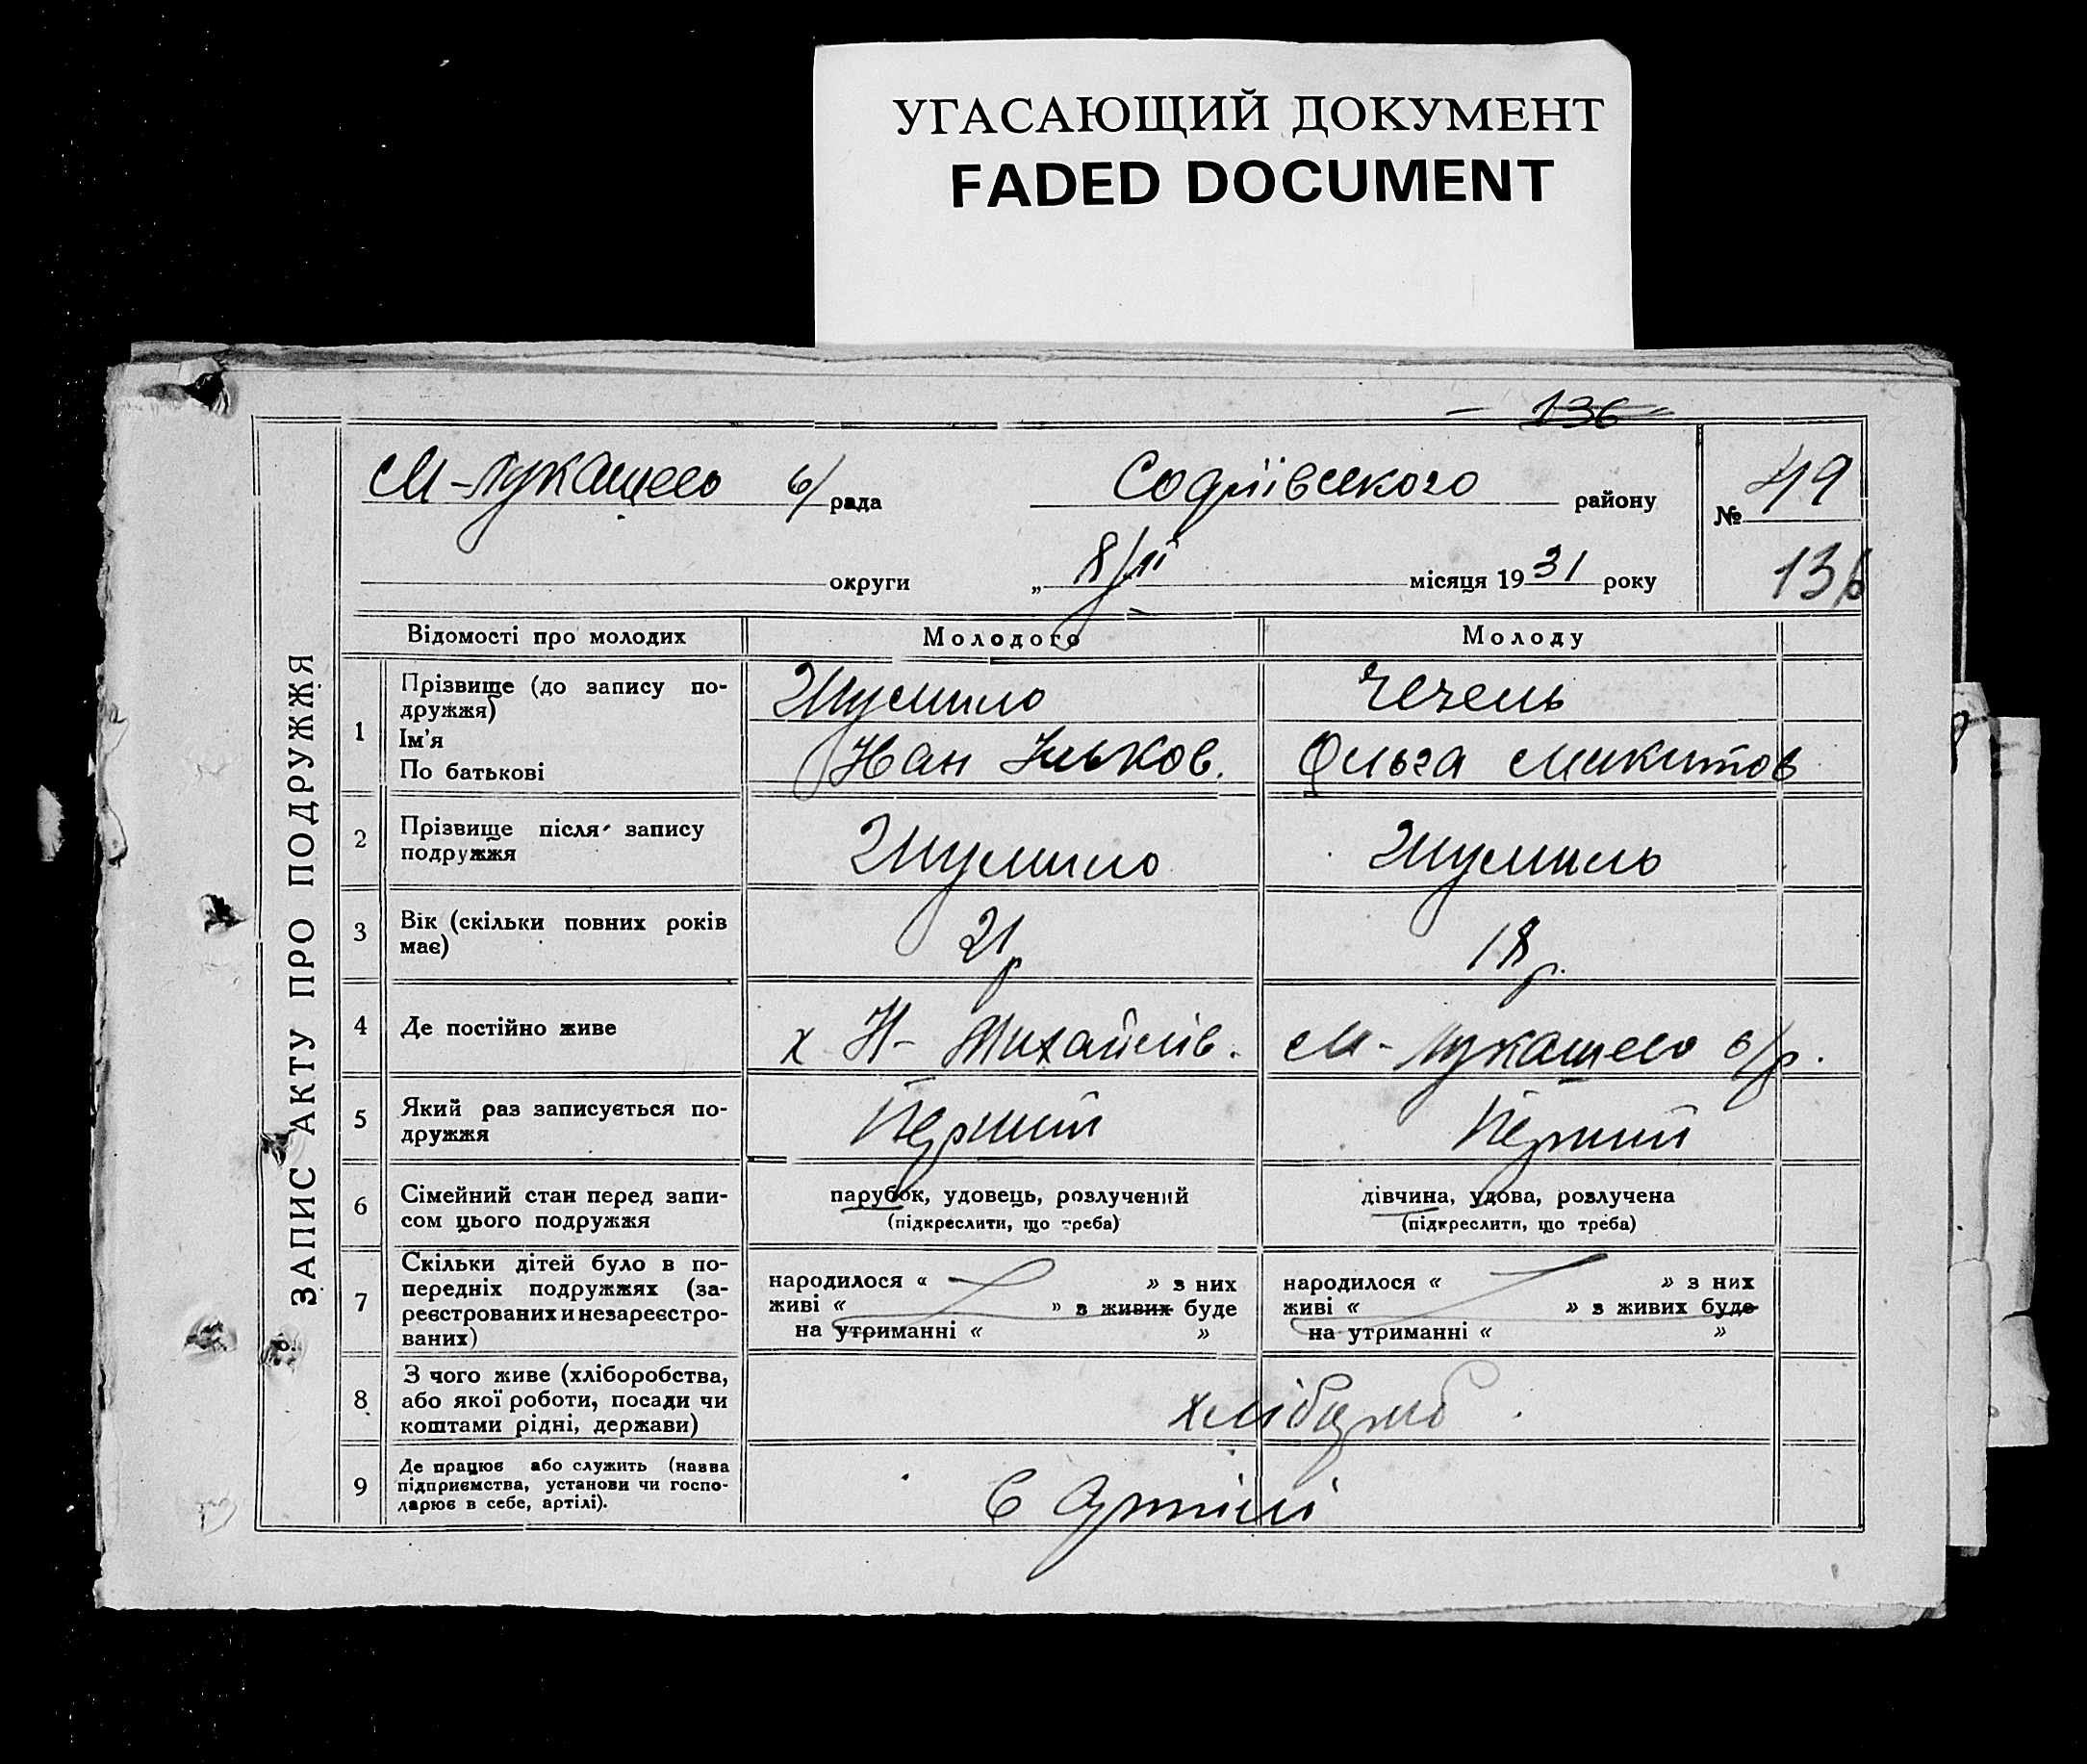 УГАСАЮЩИЙ ДОКУМЕНТ
FADED DOCUMENT
136
М-Лукашево с/рада Софіївського району № 49
округи „ 8/ІІ місяця 1931 року 136
ЗАПИС АКТУ ПРО ПОДРУЖЖЯ
Відомості про молодих Молодого Молоду
1 Прізвище (до запису по-
дружжя) Шумило Чечель
Ім'я
По батькові Іван Ильков. Ольга Микитов
2 Прізвище після запису
подружжя Шумило Шумиль
3 Вік (скільки повних років
має) 21 р 18 р.
4 Де постійно живе х Н-Михайлів. М-Лукашево с/р.
5 Який раз записується по-
дружжя Перший Перший
6 Сімейний стан перед запи-
сом цього подружжя
парубок, удовець, розлучений
(підкреслити, що треба)
дівчина, удова, розлучена
(підкреслити, що треба)
7 Скільки дітей було в по-
передніх подружжях (за-
реєстрованих и незареєстро-
ваних)
народилося « » з них
живі « » з живих буде
на утриманні « »
народилося « » з них
живі « » з живих буде
на утриманні « »
8 З чого живе (хліборобства,
або якої роботи, посади чи
коштами рідні, держави)
9 Де працює або служить (назва
підприємства, установи чи госпо-
дарює в себе, артілі).
в Артілі